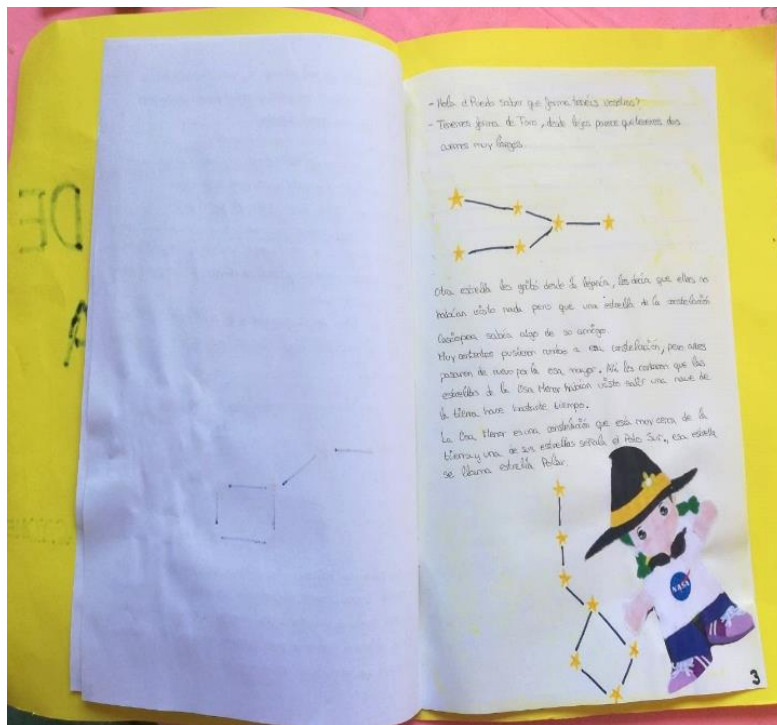 - Hola ¿Puedo saber que forma tenéis vosotros?
- Tenemos forma de Toro, desde lejos parece que tenemos dos
cuernos muy largos.
Otra estrella les gritó desde la lejanía, les decía que ellas no
habían visto nada pero que una estrella de la constelación
Casiopea sabía algo de su amigo.
Muy contentos pusieron rumbo a esa constelación, pero antes
pasaron de nuevo por la osa mayor. Allí les contaron que las
estrellas de la Osa Menor habían visto salir una nave de
la tierra hace bastante tiempo.
La Osa Menor es una constelación que está muy cerca de la
tierra y una de sus estrellas señala el Polo Sur, esa estrella
se llama estrella Polar.
NASA
3
DE